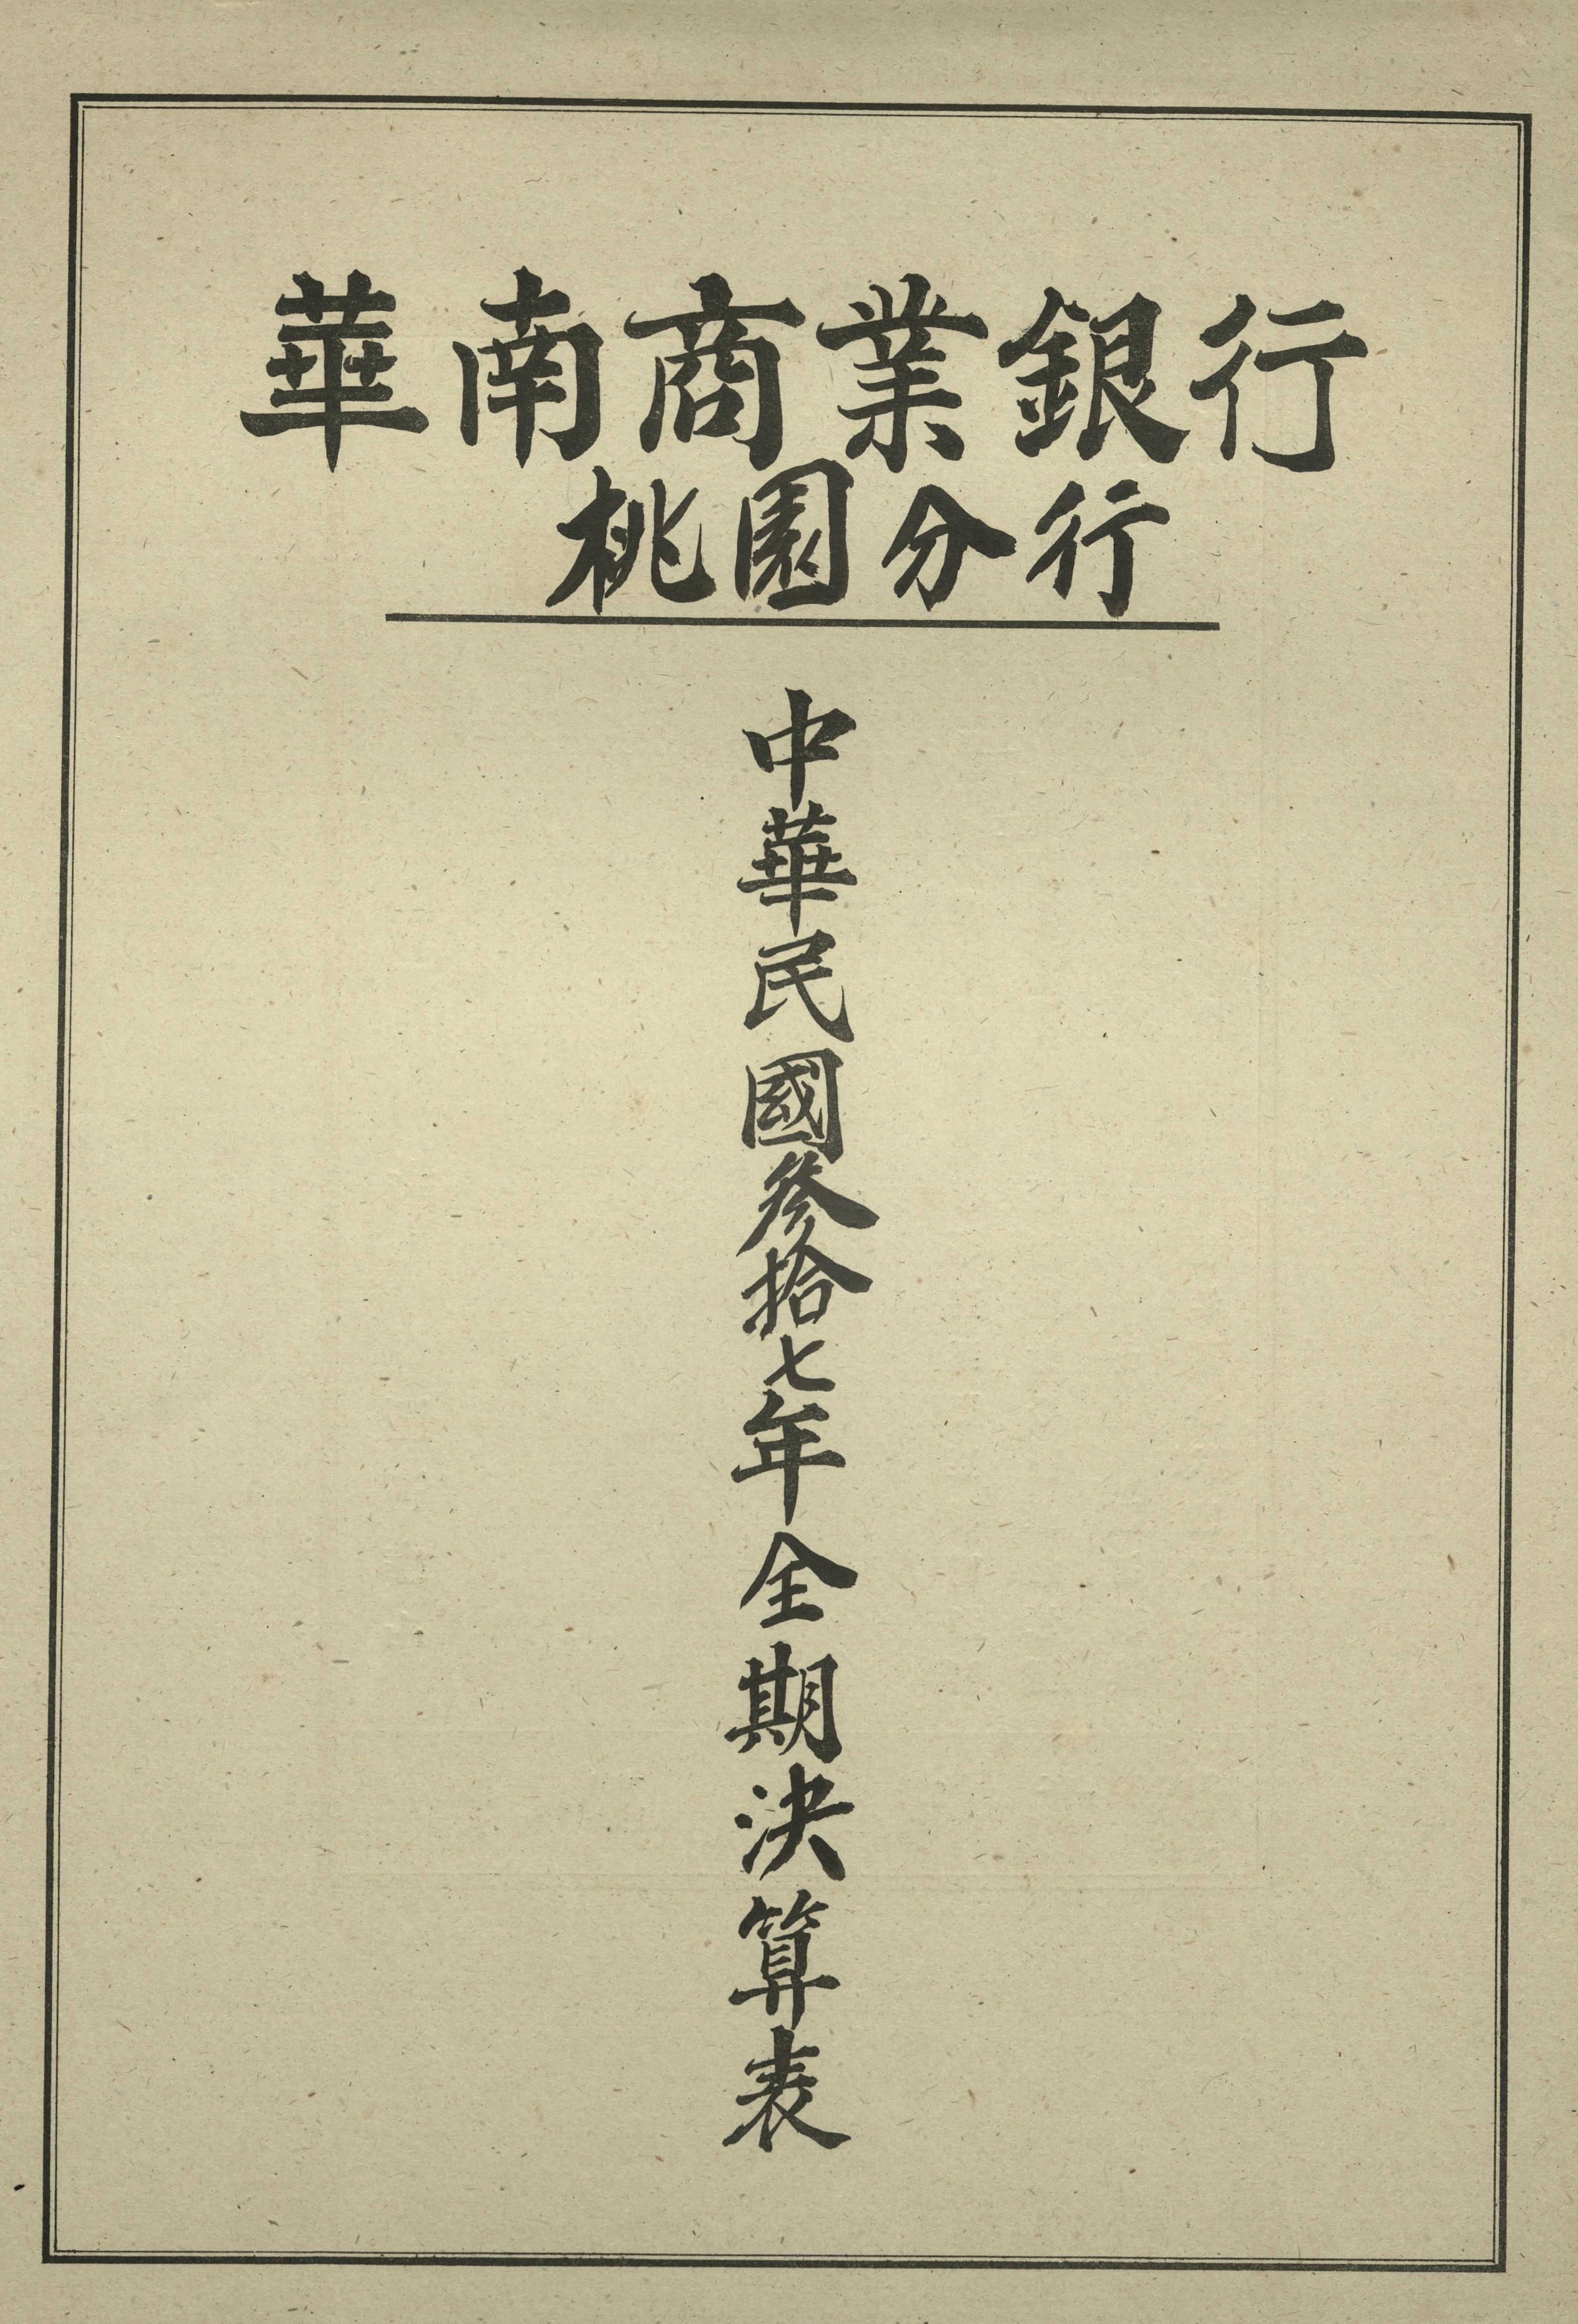 華南商業銀行
桃園分行
中華民國叅拾七年全期決算表